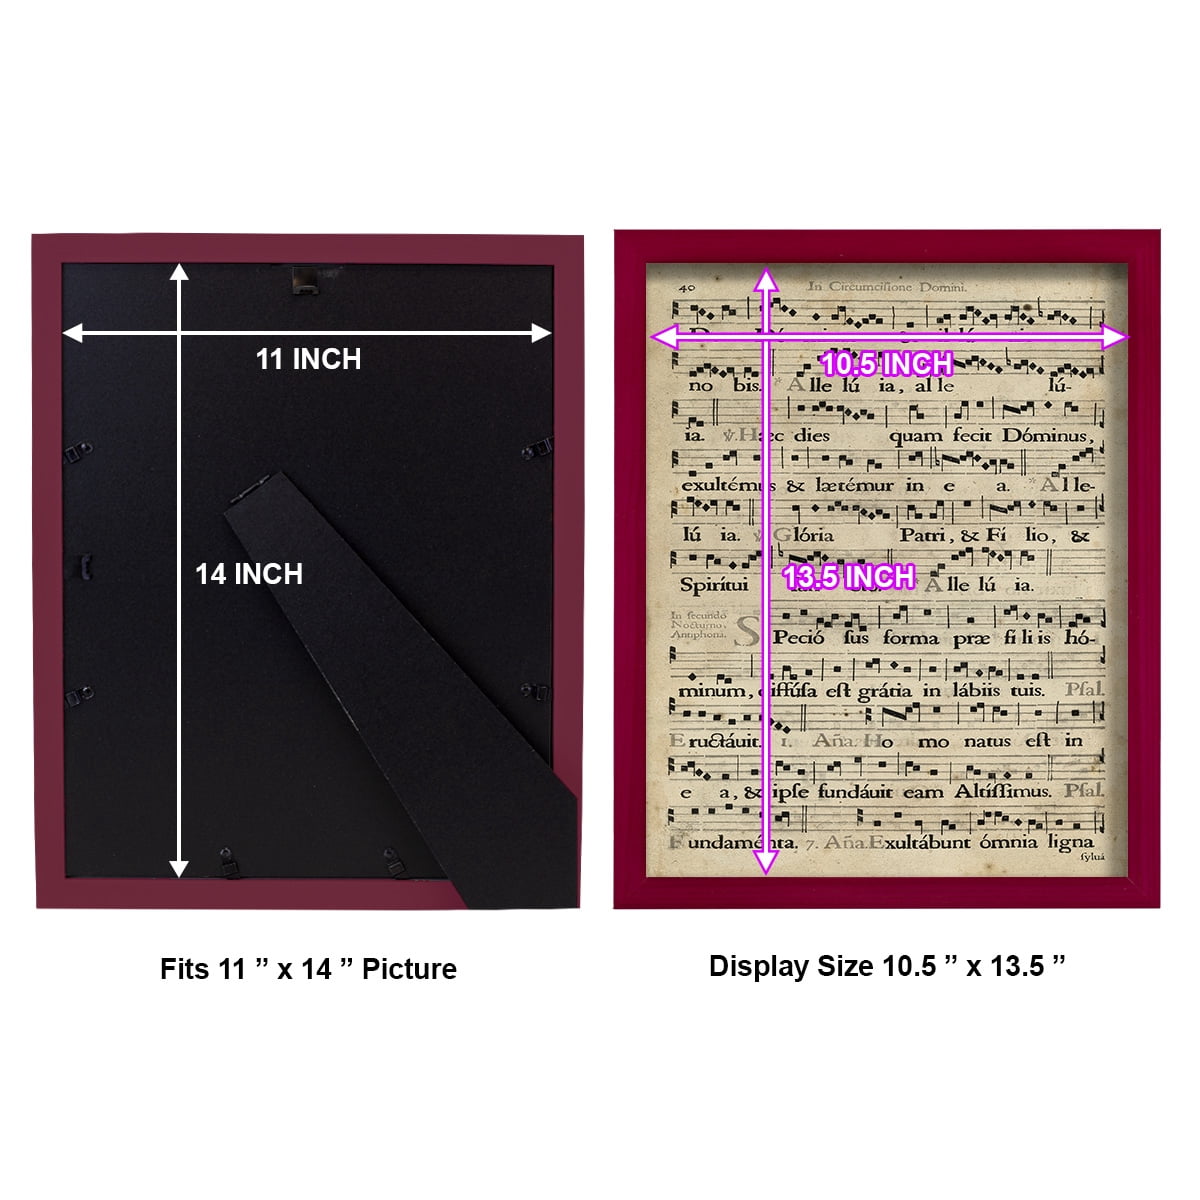 11 INCH
14 INCH
Fits 11 ” x 14 ” Picture
40 In Circumciſione Domini.
10.5 INCH
no bis. * Alle lú ia, al le lú-
ia. ℣. Hæc dies quam fecit Dóminus,
exultémus & lætémur in e a. * Alle-
lú ia. ℣ Glória Patri, & Fí lio, &
13.5 INCH
Spirítui Alle lú ia.
In ſecundo
Nocturno,
Antiphona.
SPeció ſus forma præ fi li is hó-
minum, diffúſa eſt grátia in lábiis tuis. Pſal.
Eructáuit. 1. Aña. Ho mo natus eſt in
e a, & ipſe fundáuit eam Altíſſimus. Pſal.
Fundaménta. 7. Aña. Exultábunt ómnia ligna
ſyluá
Display Size 10.5 ” x 13.5 ”